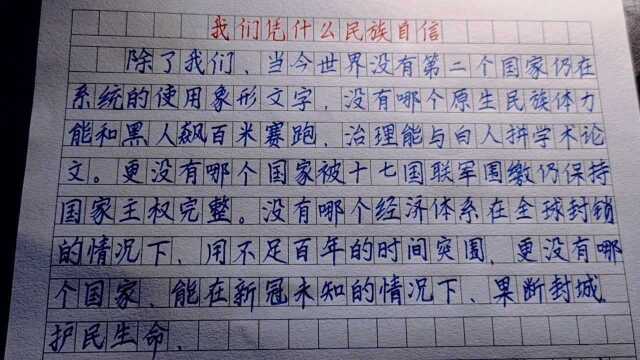 我们凭什么民族自信
除了我们、当今世界没有第二个国家仍在
系统的使用象形文字，没有哪个原生民族体力
能和黑人飙百米赛跑、治理能与白人拼学术论
文。更没有哪个国家被十七国联军围缴仍保持
国家主权完整。没有哪个经济体系在全球封锁
的情况下、用不足百年的时间突围、更没有哪
个国家、能在新冠未知的情况下、果断封城、
护民生命、